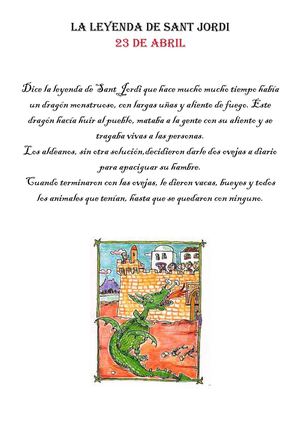 LA LEYENDA DE SANT JORDI
23 DE ABRIL
Dice la leyenda de Sant Jordi que hace mucho mucho tiempo había
un dragón monstruoso, con largas uñas y aliento de fuego. Este
dragón hacía huir al pueblo, mataba a la gente con su aliento y se
tragaba vivas a las personas.
Los aldeanos, sin otra solución,decidieron darle dos ovejas a diario
para apaciguar su hambre.
Cuando terminaron con las ovejas, le dieron vacas, bueyes y todos
los animales que tenían, hasta que se quedaron con ninguno.